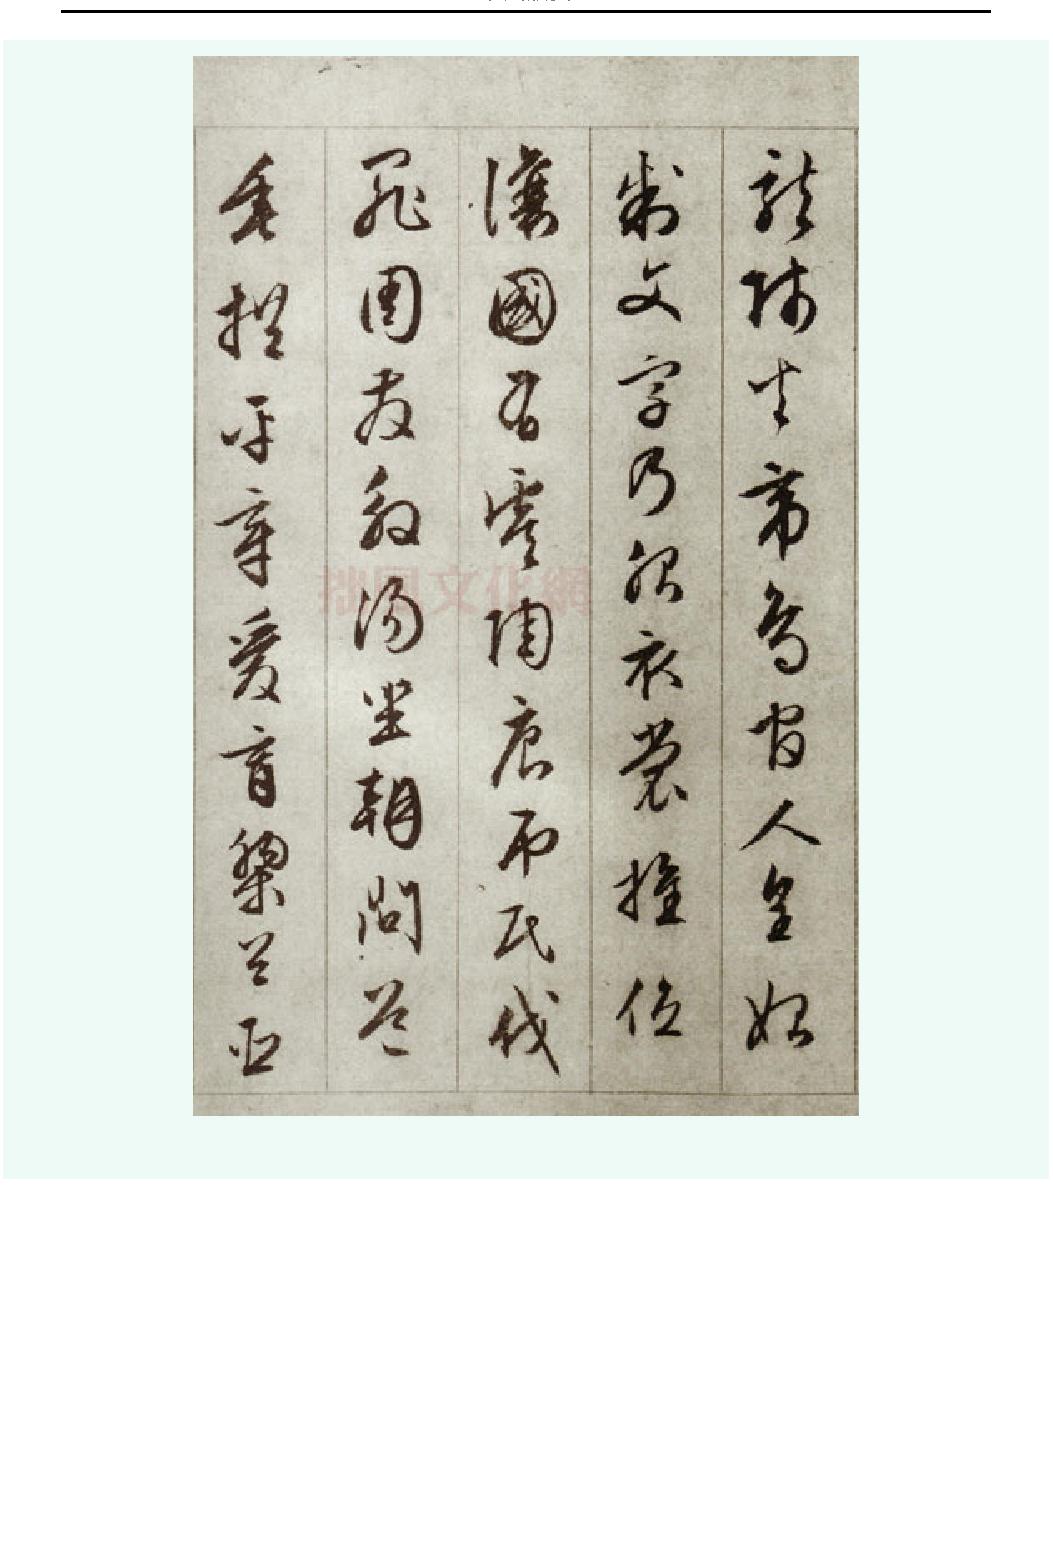 龍師火帝鳥官人皇始
制文字乃服衣裳推位
讓國有虞陶唐弔民伐
罪周發殷湯坐朝問道
垂拱平章愛育黎首臣
拙風文化網